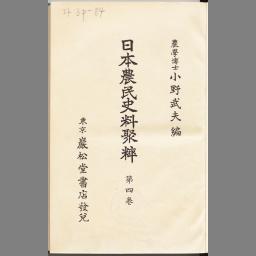 農學博士 小野武夫 編
日本農民史料聚粹
第四卷
東京 巖松堂書店發兌